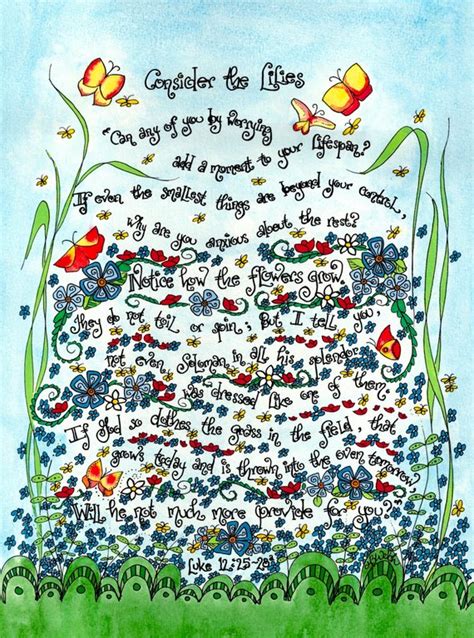 Consider the Lilies
"Can any of you by worrying
add a moment to your lifespan?
If even the smallest things are beyond your control,
why are you anxious about the rest?
Notice how the flowers grow
They do not toil or spin; But I tell you,
not even Soloman in all his splendor
was dressed like one of them.
If God so clothes the grass in the field, that
grows today and is thrown into the oven tomorrow?
Will he not much more provide for you?"
Luke 12:25-28